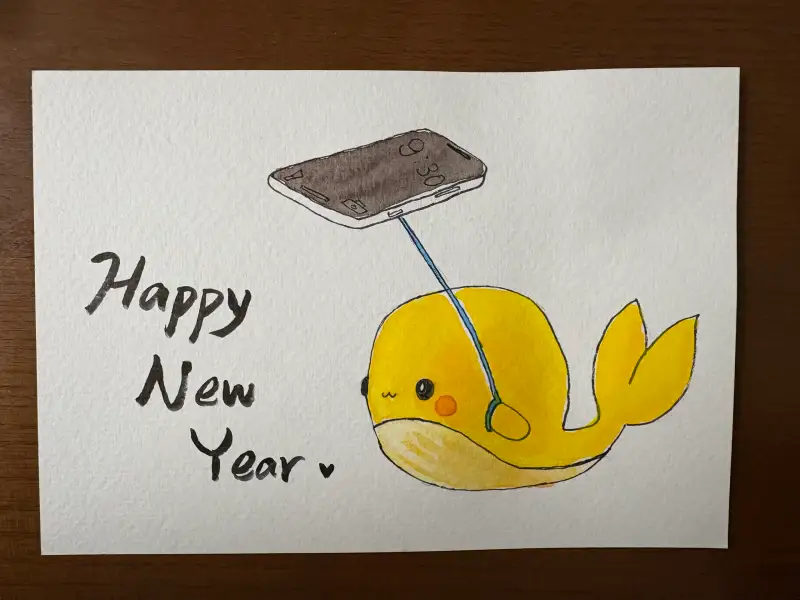 9:30
Happy
New
Year ♥